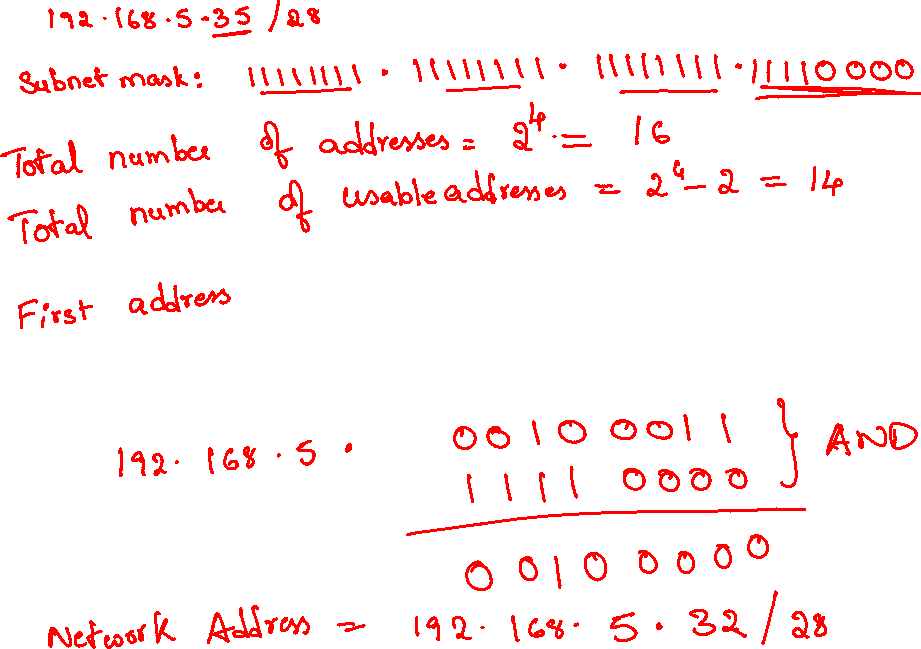 192.168.5.35/28
Subnet mask: 11111111.11111111.11111111.11110000
Total number of addresses = 2^4 = 16
Total number of usable addresses = 2^4-2 = 14
First address
192.168.5. 0010 0011 } AND
1111 0000
0010 0000
Network Address = 192.168.5.32/28